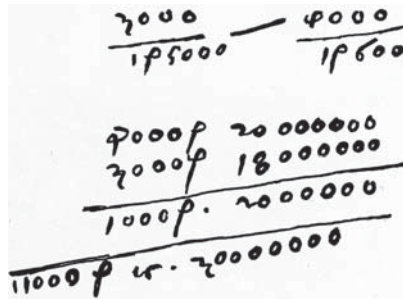 3000 — 4000
1ρ5000 1ρ600
4000ρ 20000000
3000ρ 18000000
1000ρ. 2000000
11000ρ 30000000